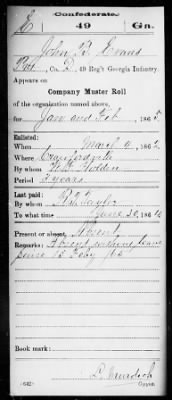 Confederate.
E 49 Ga.
John B. Evans
Pvt, Co. D, 49 Reg't Georgia Infantry.
Appears on
Company Muster Roll
of the organization named above,
for Jan and Feb, 1865
Enlisted:
When March 4, 1862
Where Crawfordville
By whom Holden
Period 3 years
Last paid:
By whom Taylor
To what time June 30, 1864
Present or absent Absent
Remarks: Absent without leave
since 15 Feby 65
Book mark:
(642)
Copyist.